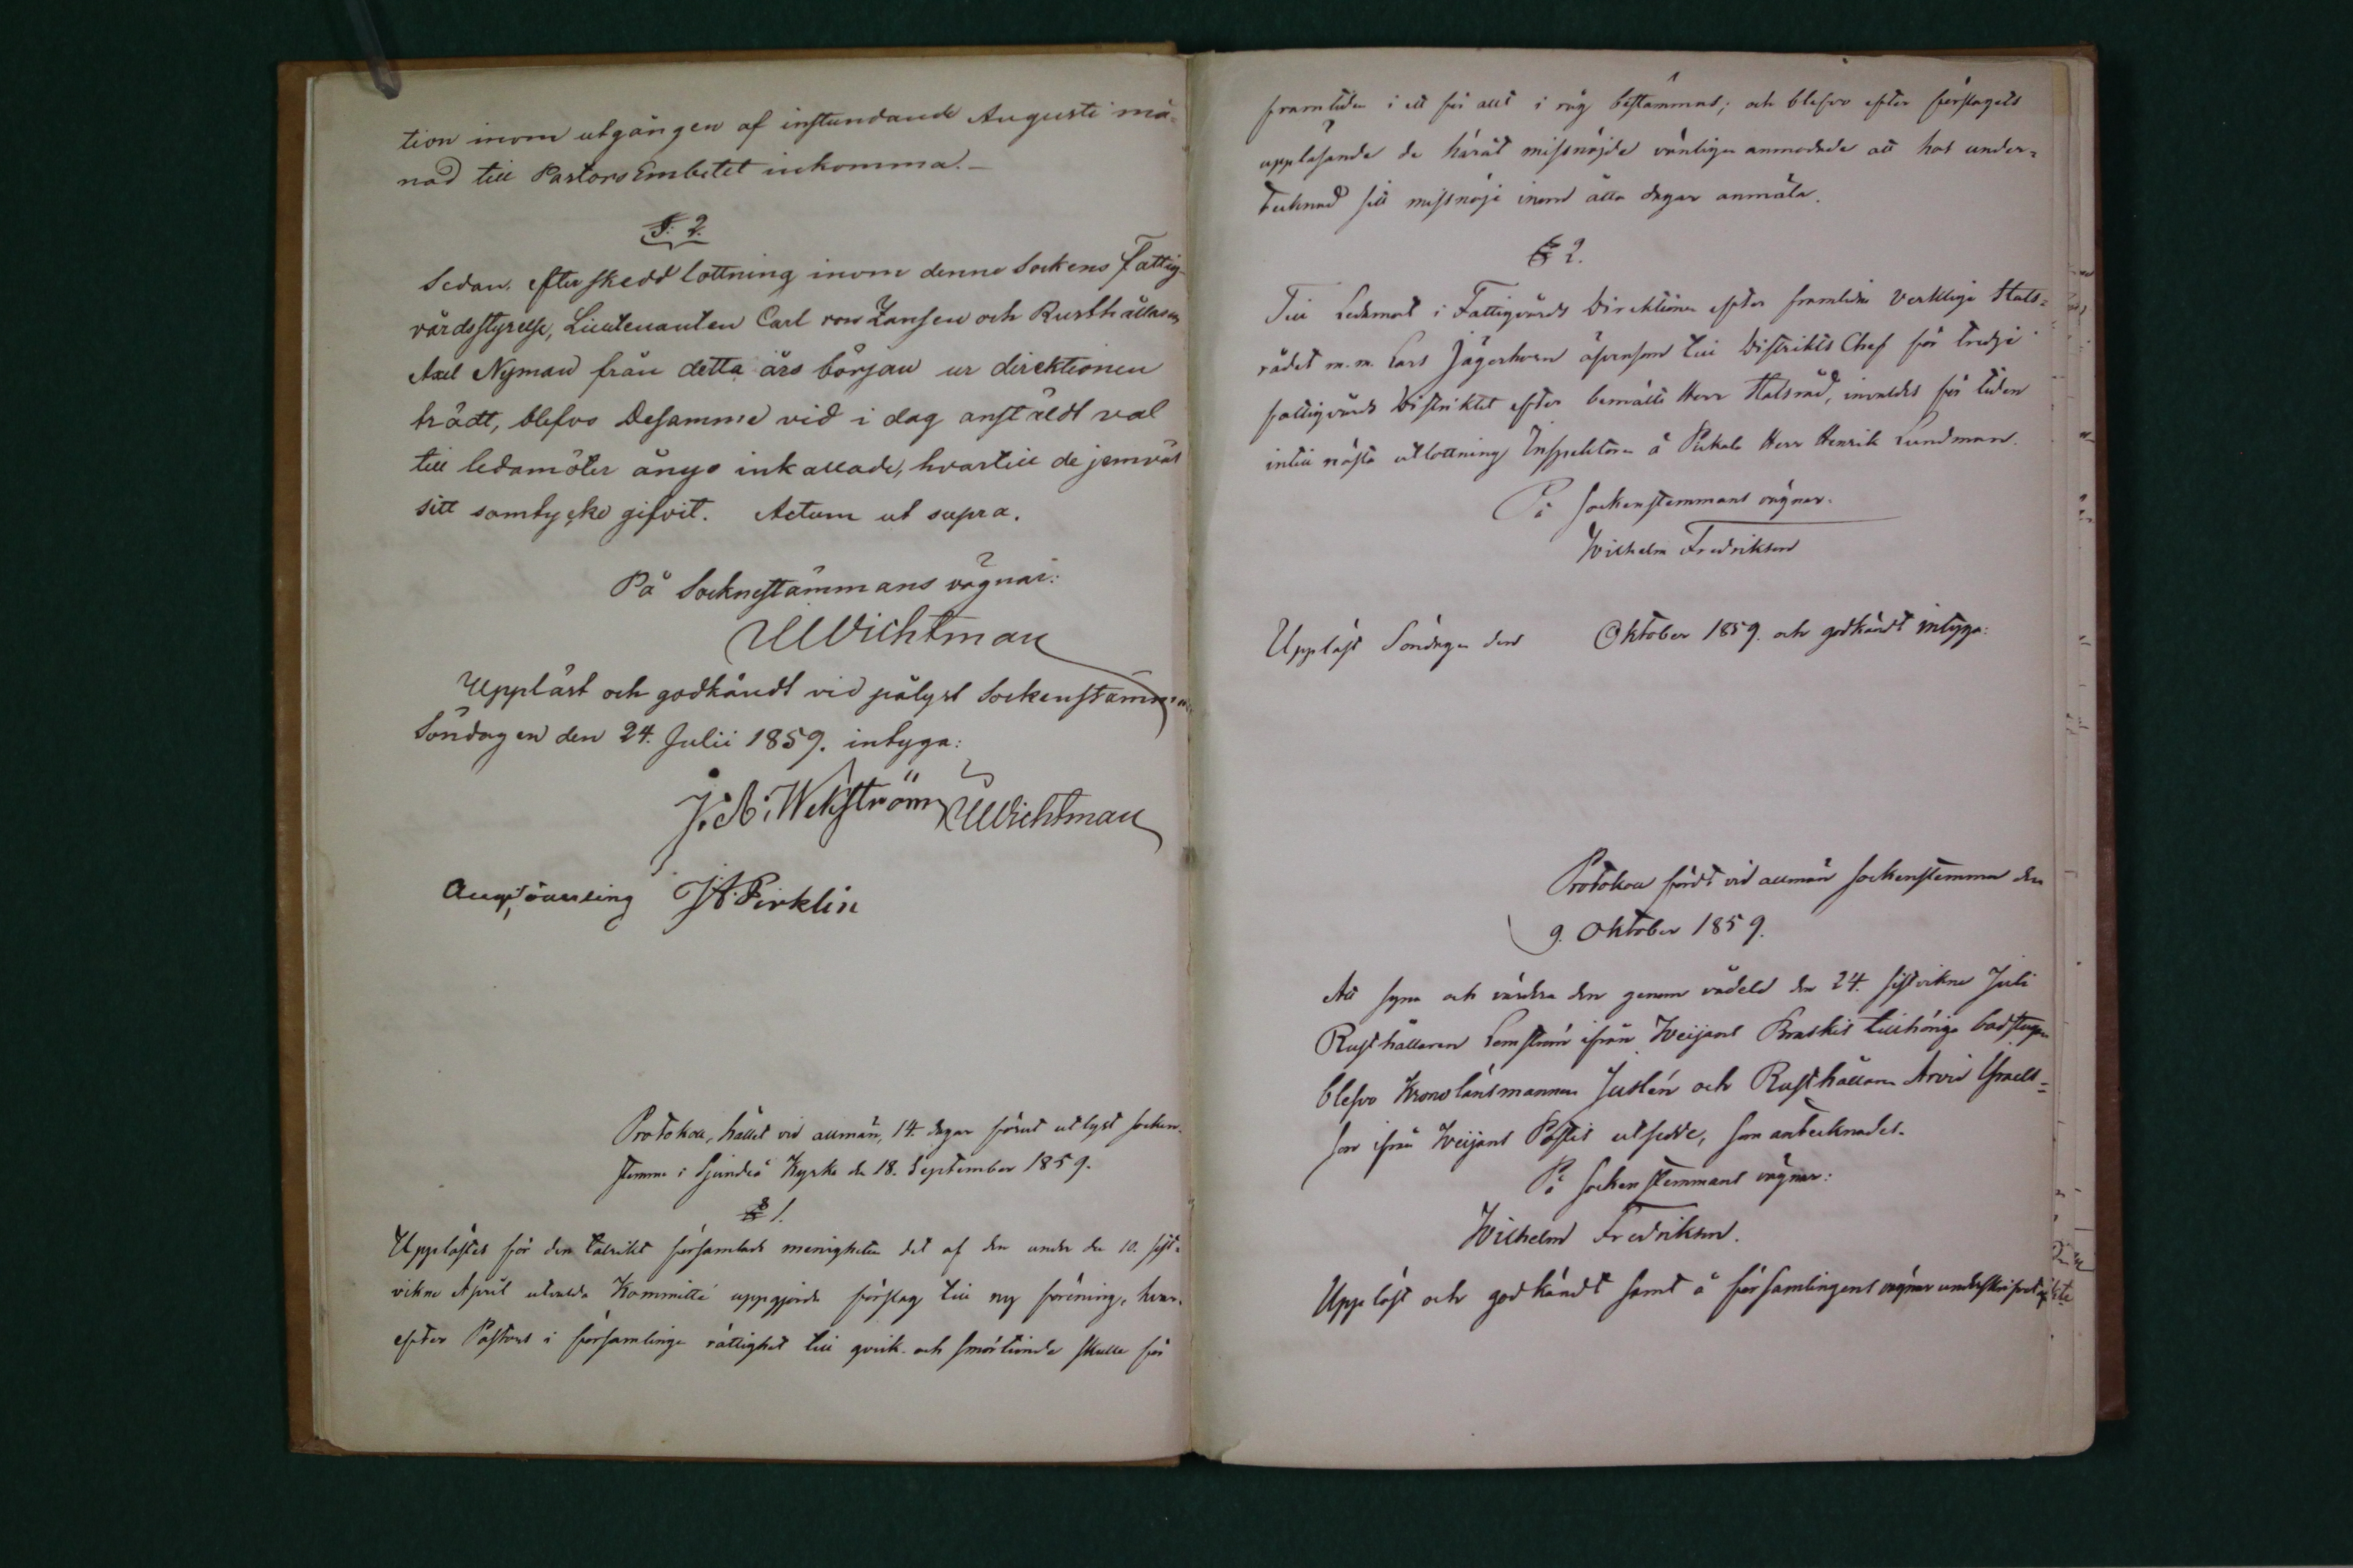 tion inom utgången af instundande Augusti må-
nad till Pastors Embetet inkomma.-
§. 2.
Sedan, efter skedd lottning inom denne Sockens Fattig-
vårdsstyrelse, Lieutenanten Carl von Zansen och Rusthållaren
Axel Nyman från detta års början ur direktionen
trädt, blefvo Desamme vid i dag anstäldt val
till ledamöter ånyo inkallade, hvartill de jemväl
sitt samtycke gifvit. Actum ut supra.
På Socknestämmans vägnar:
Wichtman
Uppläst och godkändt vid pålyst Sockenstämma
Söndagen den 24. Julii 1859. intyga:
J. A. Wekström Wichtman
J A. Pirklin
Protokoll, hållet vid allmän, 14. dagar förut utlyst socken-
stemma i Sjundeå Kyrka den 18. September 1859.
§ 1.
Upplästes för den talrikt församlade menigheten det af den under den 10. sist-
vikne April utvalda Kommitté uppgjorda förslag till ny förening, hvar-
efter Pastors i församlingen rättighet till qvick- och smörtionde skulle för
framtiden i ett för allt i råg bestämmas; och blefvo efter förslagets
uppläsande de häråt missnöjde vänligen anmodade att hos under-
tecknad sitt missnöje inom åtta dagar anmäla.
§ 2.
Till Ledamot i Fattigvårds Direktionen efter framlidne Verklige Stats-
rådet m. m. Lars Jägerhorn äfvensom till Distrikts Chef för tredje
fattigvårds Distriktet efter bemälte Herr Statsråd, invaldes för tiden
intill nästa utlottning Inspektoren å Pickala Herr Henrik Lundman.
På sockenstemmans vägnar:
Wilhelm Fredrikson
Uppläst Söndagen den Oktober 1859. och godkändt intyga:
Protokoll fördt vid allmän sockenstemma den
9. Oktober 1859.
Att syna och värdera den genom vådeld den 24. sistvikne Juli
Rusthållaren Lemström ifrån Weijans Braskis tillhöriga badstuga
blefvo Kronolänsmannen Juslén och Rusthållaren Arvid Israels-
son ifrån Weijans Påstis utsedde, som antecknades.
På sockenstemmans vägnar:
Wilhelm Fredrikson.
Uppläst och godkändt samt å församlingens vägnar underskrifvet